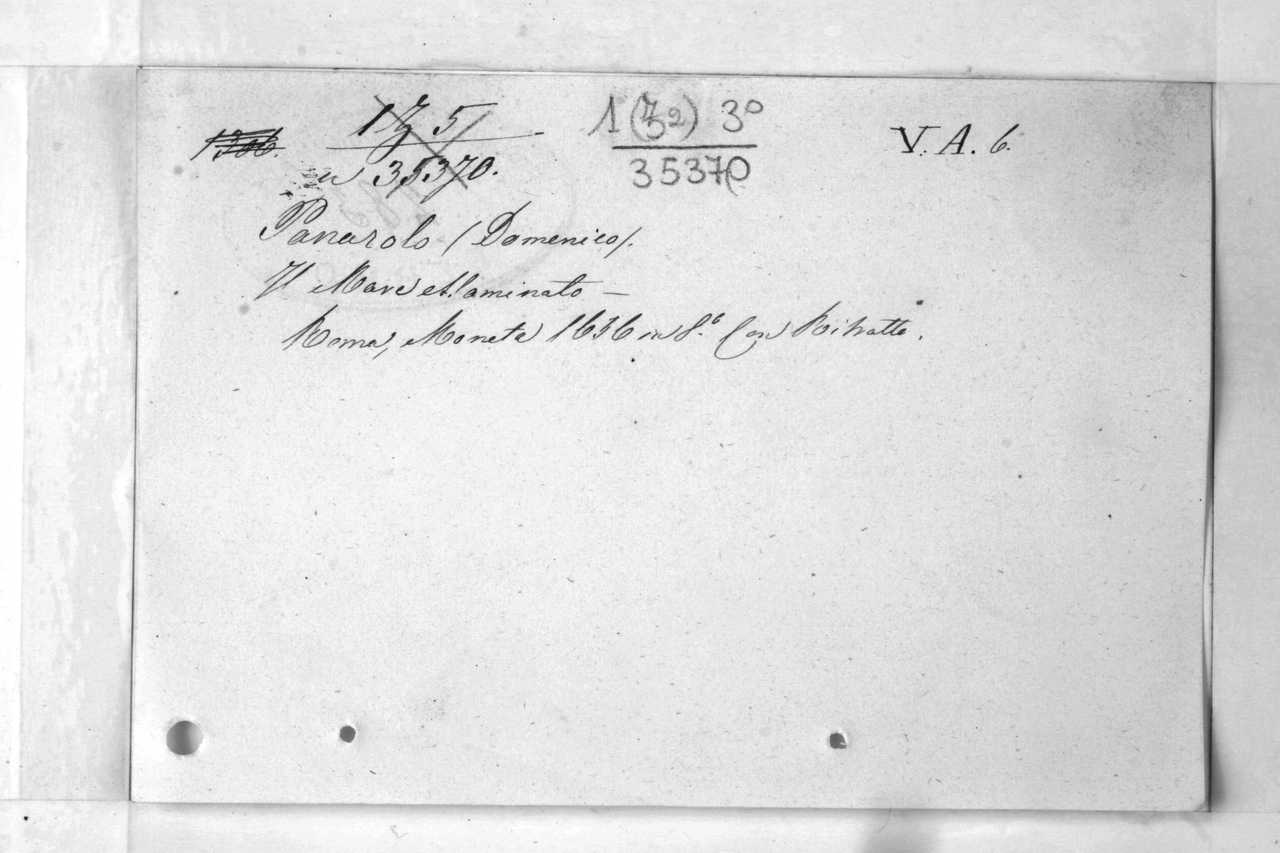 1 Z 5
35370.
1 (Z2) 3º
35370
V. A. 6.
Panarolo (Domenico).
Il Mare esaminato —
Roma, Moneta 1636 in 8.º Con Ritratto.